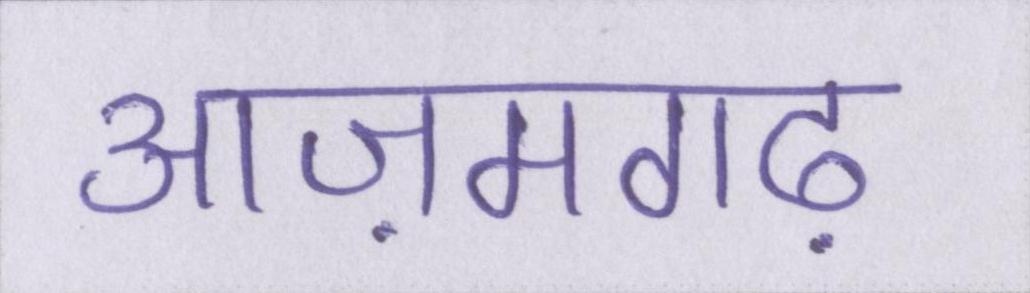 आज़मगढ़